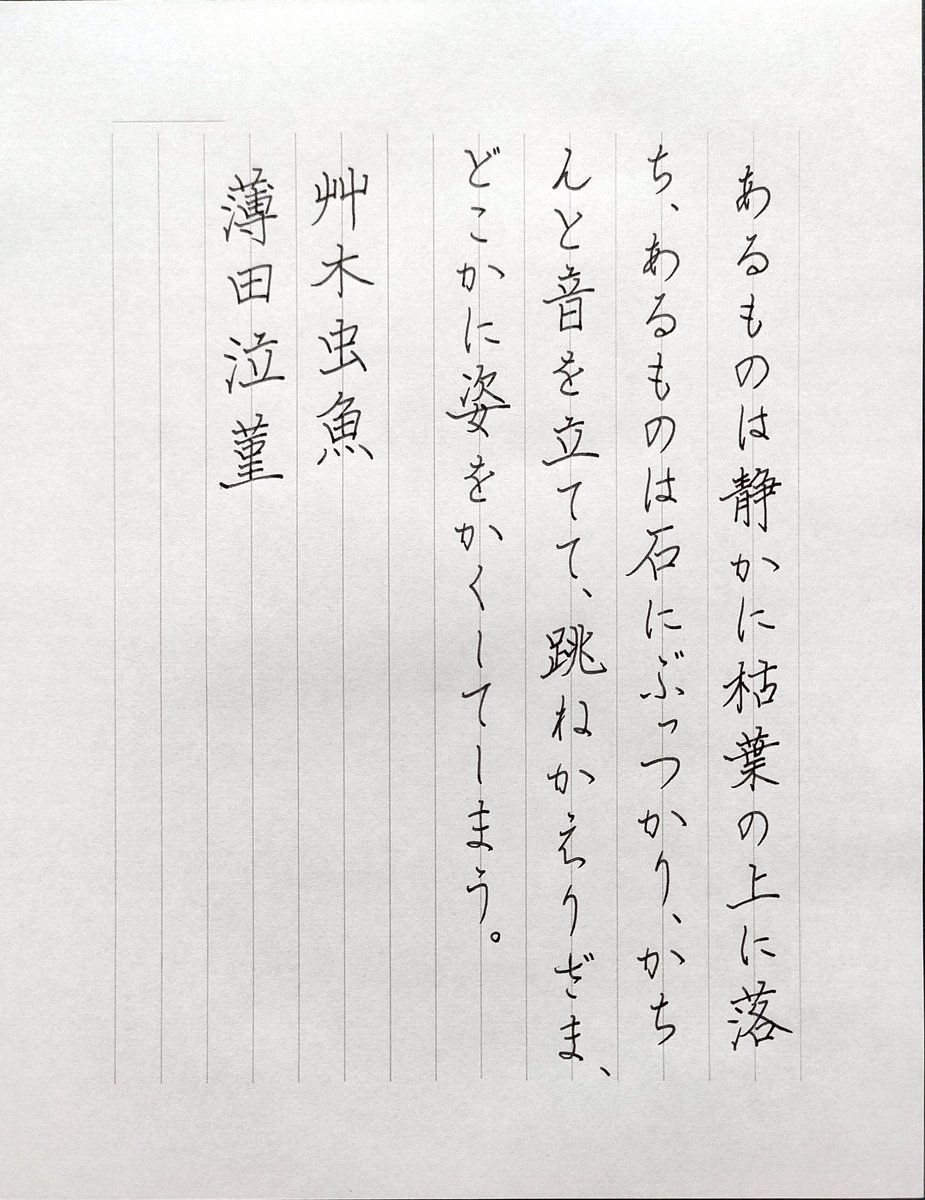 あるものは静かに枯葉の上に落
ち、あるものは石にぶっつかり、かち
んと音を立てて、跳ねかえりざま、
どこかに姿をかくしてしまう。
艸木虫魚
薄田泣菫